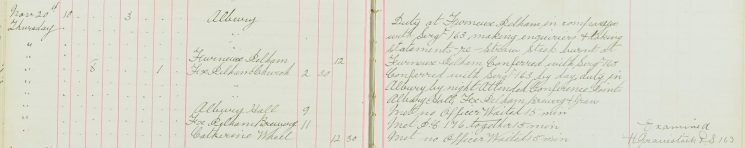 Nov 20th 10 3 Albury
Thursday
" "
" Furneux Pelham 12
" 8 1 Pelham Church 2 30
"
" Albury Hall 9
" Pelham 11
" Catherine Wheel 12 30
Duty at Furneux Pelham in company
with Sergt 163 making enquiries & taking
statements re Straw Stack burnt at
Furneux Pelham Conferred with Sergt 163
Conferred with Sergt 163 by day, duty in
Albury by night Attended Conference Points
Albury Hall,
Met no Officer Waited 15 min
Met P.C 176 together 15 min
Met no Officer Waited 15 min
Examined
P.S 163